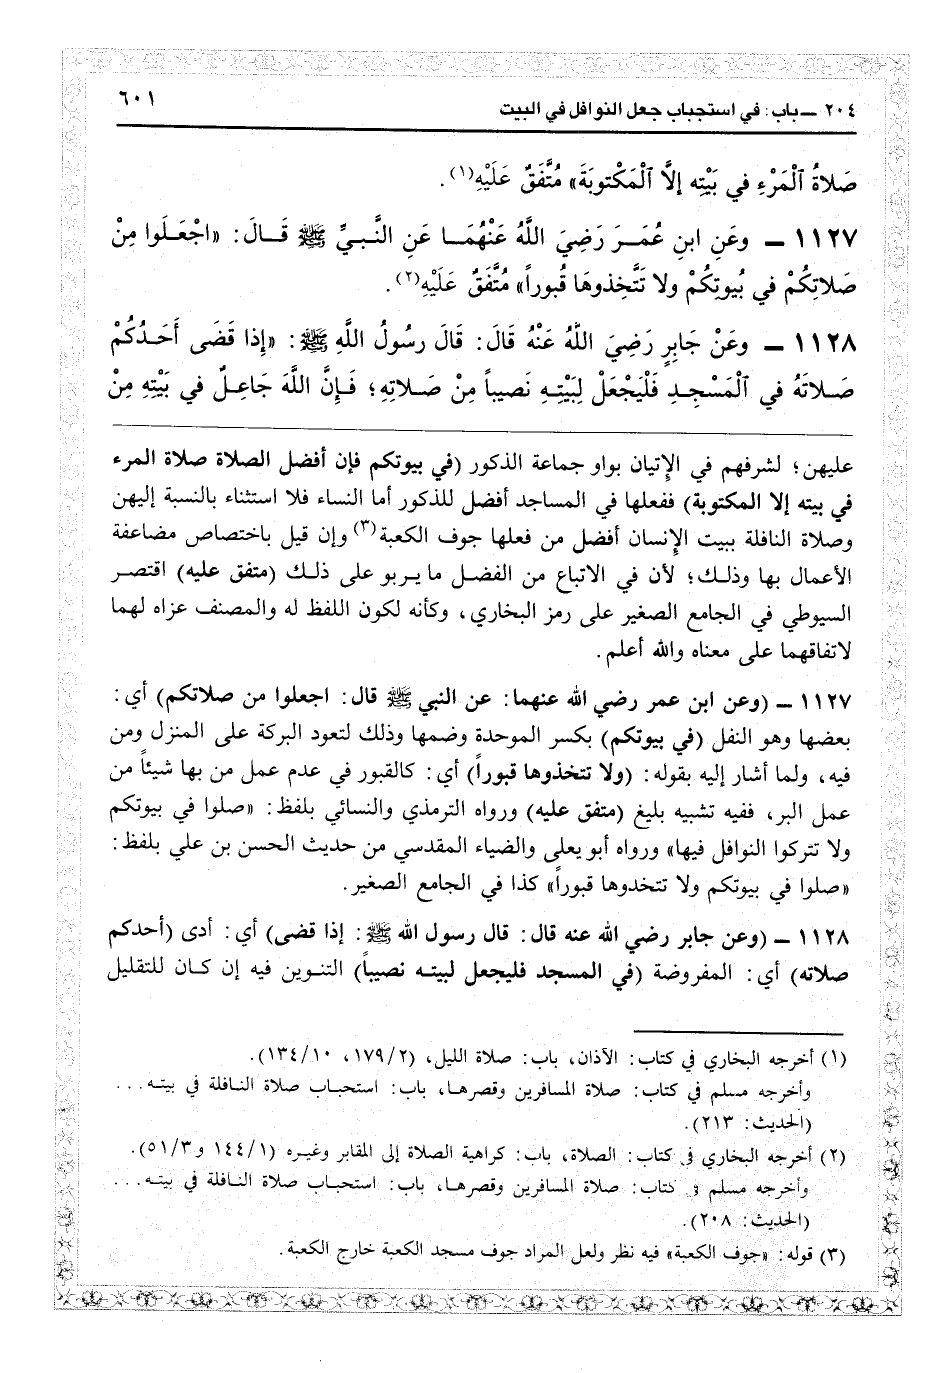 ٢٠٤ ــ باب: في استحباب جعل النوافل في البيت
٦٠١
صَلاةُ ٱلْمَرْءِ في بَيْتِه إلَّا ٱلْمَكْتوبَةَ» مُتَّفَقٌ عَلَيْهِ(١).
١١٢٧ ــ وعَنِ ابنِ عُمَـرَ رَضِيَ اللَّهُ عَنْهُمَـا عَنِ النَّبـيِّ ﷺ قَـالَ: «اجْعَلَوا مِنْ
صَلاتِكُمْ في بُيوتِكُمْ ولا تَتَّخِذوهَا قُبوراً» مُتَّفَقٌ عَلَيْهِ(٢).
١١٢٨ ــ وعَنْ جَابِرٍ رَضِيَ اللَّهُ عَنْهُ قَالَ: قَالَ رسُولُ اللَّهِ ﷺ: «إِذا قَضَى أَحَدُكُمْ
صَـلاتَهُ في ٱلْمَسْجِـدِ فَلْيَجْعَلْ لِبَيْتِـهِ نَصيباً مِنْ صَـلاتِهِ؛ فَـإِنَّ اللَّهَ جَاعِـلٌ في بَيْتِهِ مِنْ
عليهن؛ لشرفهم في الإتيان بواو جماعة الذكور (في بيوتكم فإن أفضل الصلاة صلاة المرء
في بيته إلا المكتوبة) ففعلها في المساجد أفضل للذكور أما النساء فلا استثناء بالنسبة إليهن
وصلاة النافلة ببيت الإنسان أفضل من فعلها جوف الكعبة(٣) وإن قيل باختصاص مضاعفة
الأعمال بها وذلك؛ لأن في الاتباع من الفضل ما يربو على ذلك (متفق عليه) اقتصر
السيوطي في الجامع الصغير على رمز البخاري، وكأنه لكون اللفظ له والمصنف عزاه لهما
لاتفاقهما على معناه والله أعلم.
١١٢٧ ــ (وعن ابن عمر رضي الله عنهما: عن النبي ﷺ قال: اجعلوا من صلاتكم) أي:
بعضها وهو النفل (في بيوتكم) بكسر الموحدة وضمها وذلك لتعود البركة على المنزل ومن
فيه، ولما أشار إليه بقوله: (ولا تتخذوها قبوراً) أي: كالقبور في عدم عمل من بها شيئاً من
عمل البر، ففيه تشبيه بليغ (متفق عليه) ورواه الترمذي والنسائي بلفظ: «صلوا في بيوتكم
ولا تتركوا النوافل فيها» ورواه أبو يعلى والضياء المقدسي من حديث الحسن بن علي بلفظ:
«صلوا في بيوتكم ولا تتخدوها قبوراً» كذا في الجامع الصغير.
١١٢٨ ــ (وعن جابر رضي الله عنه قال: قال رسول الله ﷺ: إذا قضى) أي: أدى (أحدكم
صلاته) أي: المفروضة (في المسجد فليجعل لبيته نصيباً) التنوين فيه إن كان للتقليل
(١) أخرجه البخاري في كتاب: الآذان، باب: صلاة الليل، (١٧٩/٢، ١٣٤/١٠).
وأخرجه مسلم في كتاب: صلاة المسافرين وقصرها، باب: استحباب صلاة النافلة في بيته...
(الحديث: ٢١٣).
(٢) أخرجه البخاري في كتاب: الصلاة، باب: كراهية الصلاة إلى المقابر وغيره (١٤٤/١ و ٥١/٣).
وأخرجه مسلم في كتاب: صلاة المسافرين وقصرها، باب: استحباب صلاة النافلة في بيته...
(الحديث: ٢٠٨).
(٣) قوله: «جوف الكعبة» فيه نظر ولعل المراد جوف مسجد الكعبة خارج الكعبة.